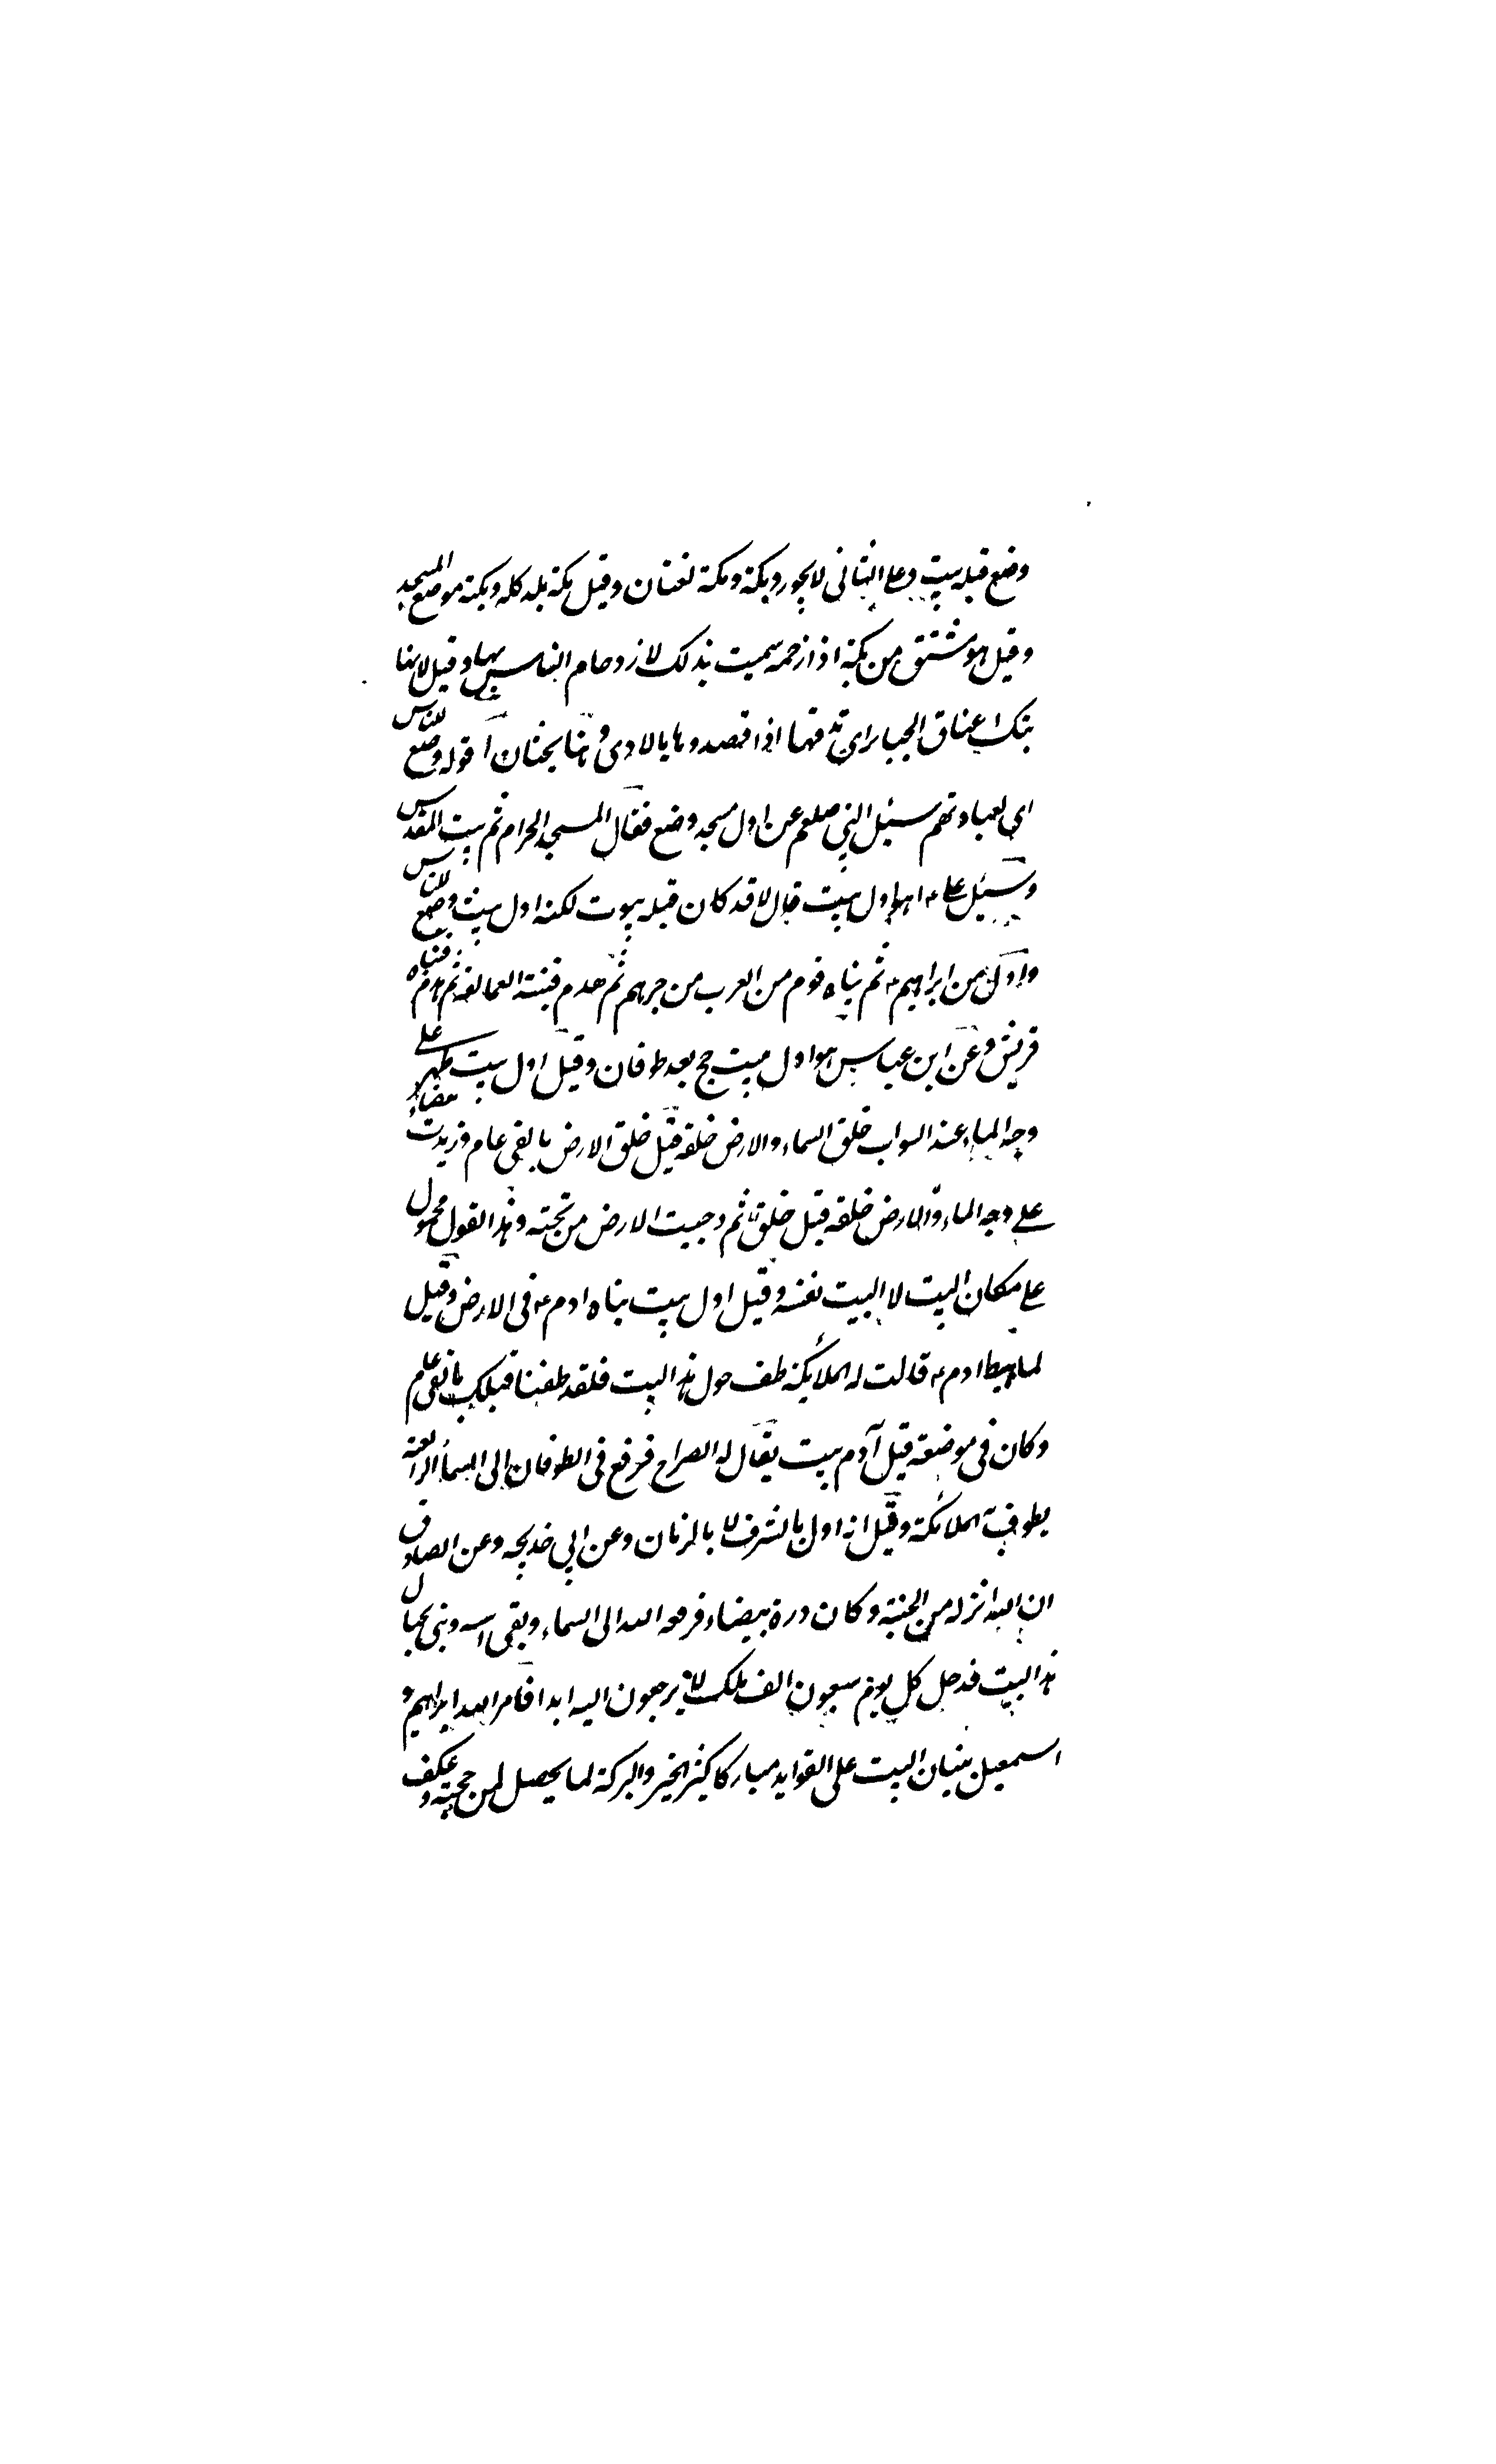 وضع قبله بيت وعلى الثانى لا يجوز وبكة ومكة لغتان وقيل مكة بلد كله وبكة موضع المسجد
وقيل هو مشتق من بكة اذا زحمه سميت بذلك لازدحام الناس بها وقيل لانها
تبك اعناق الجبابرة اى تدقها اذا قصدوها بالاذى وهنا بحثان آ قوله وضع للناس
اى لعبادتهم سئل النبى صلعم عن اول مسجد وضع فقال المسجد الحرام ثم بيت المقدس
وسئل على ء اهو اول بيت قال لا قد كان قبله بيوت لكنه اول بيت وضع للناس
واول من ابراهيم ء ثم بناه قوم من العرب من جرهم ثم هدم فبنته العمالقة ثم هدم فبناه
قريش وعن ابن عباس هو اول بيت حج بعد طوفان وقيل اول بيت ظهر على
وجه الماء عند خلق السماء والارض خلقه قبل خلق الارض بالفى عام وزبدة بيضاء
على وجه الماء والارض خلقه قبل خلق ثم دحيت الارض من تحته وهذا القول محمول
على مكان البيت لا البيت نفسه وقيل اول بيت بناه ادم ء فى الارض وقيل
لما هبط ادم ء قالت له الملائكة طف حول هذا البيت فلقد طفنا قبلك بالفى عام
وكان فى موضعه قبل آدم بيت يقال له الصراح فرفع فى الطوفان الى السماء الرابعة
يطوف به الملائكة وقيل انه اول بالشرف لا بالزمان وعن ابى خديجه وعن الصادق
ان الله انزله من الجنة وكان درة بيضاء فرفعه الله الى السماء وبقى اسه وبنى بحيال
هذا البيت فدخل كل يوم سبعون الف ملك لا يرجعون اليه ابدا فامر الله ابراهيم و
اسمعيل بنيان البيت على القوايد مباركا كثير الخير والبركة لما يحصل لمن حجه وعكف